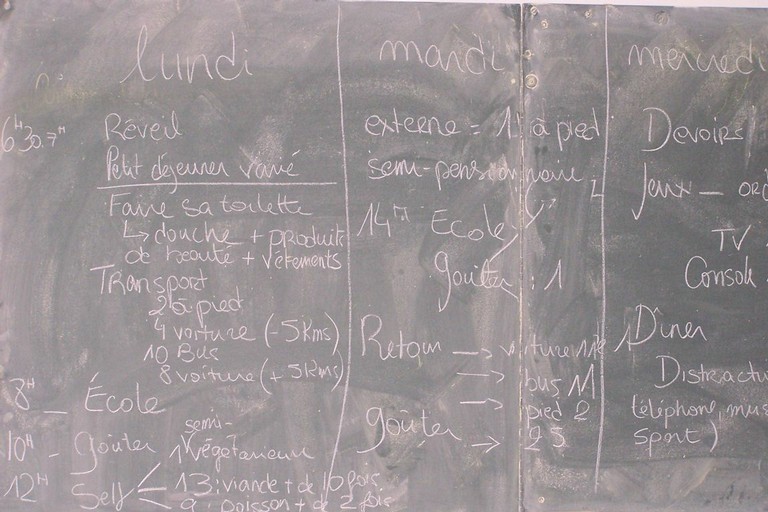 lundi
6H30.7H Réveil
Petit déjeuner varié
Faire sa toilette
↳ douche + produits
de beauté + vêtements
Transport
2 à pied
4 voiture (-5kms)
10 Bus
8 voiture (+5kms)
8H _ École
10H - Goûter
12H Self
semi-
1 végétarienne
13: viande + de 10 fois
9: poisson + de 2 fois
mardi
externe = 1 à pied
semi-pensionnaire
14H École
goûter : 1
Retour → voiture
→ bus 11
→ pied 2
goûter → 25
mercredi
Devoirs
Jeux _ ord
TV
Console
Dîner
Distracti
téléphone, mus
sport)